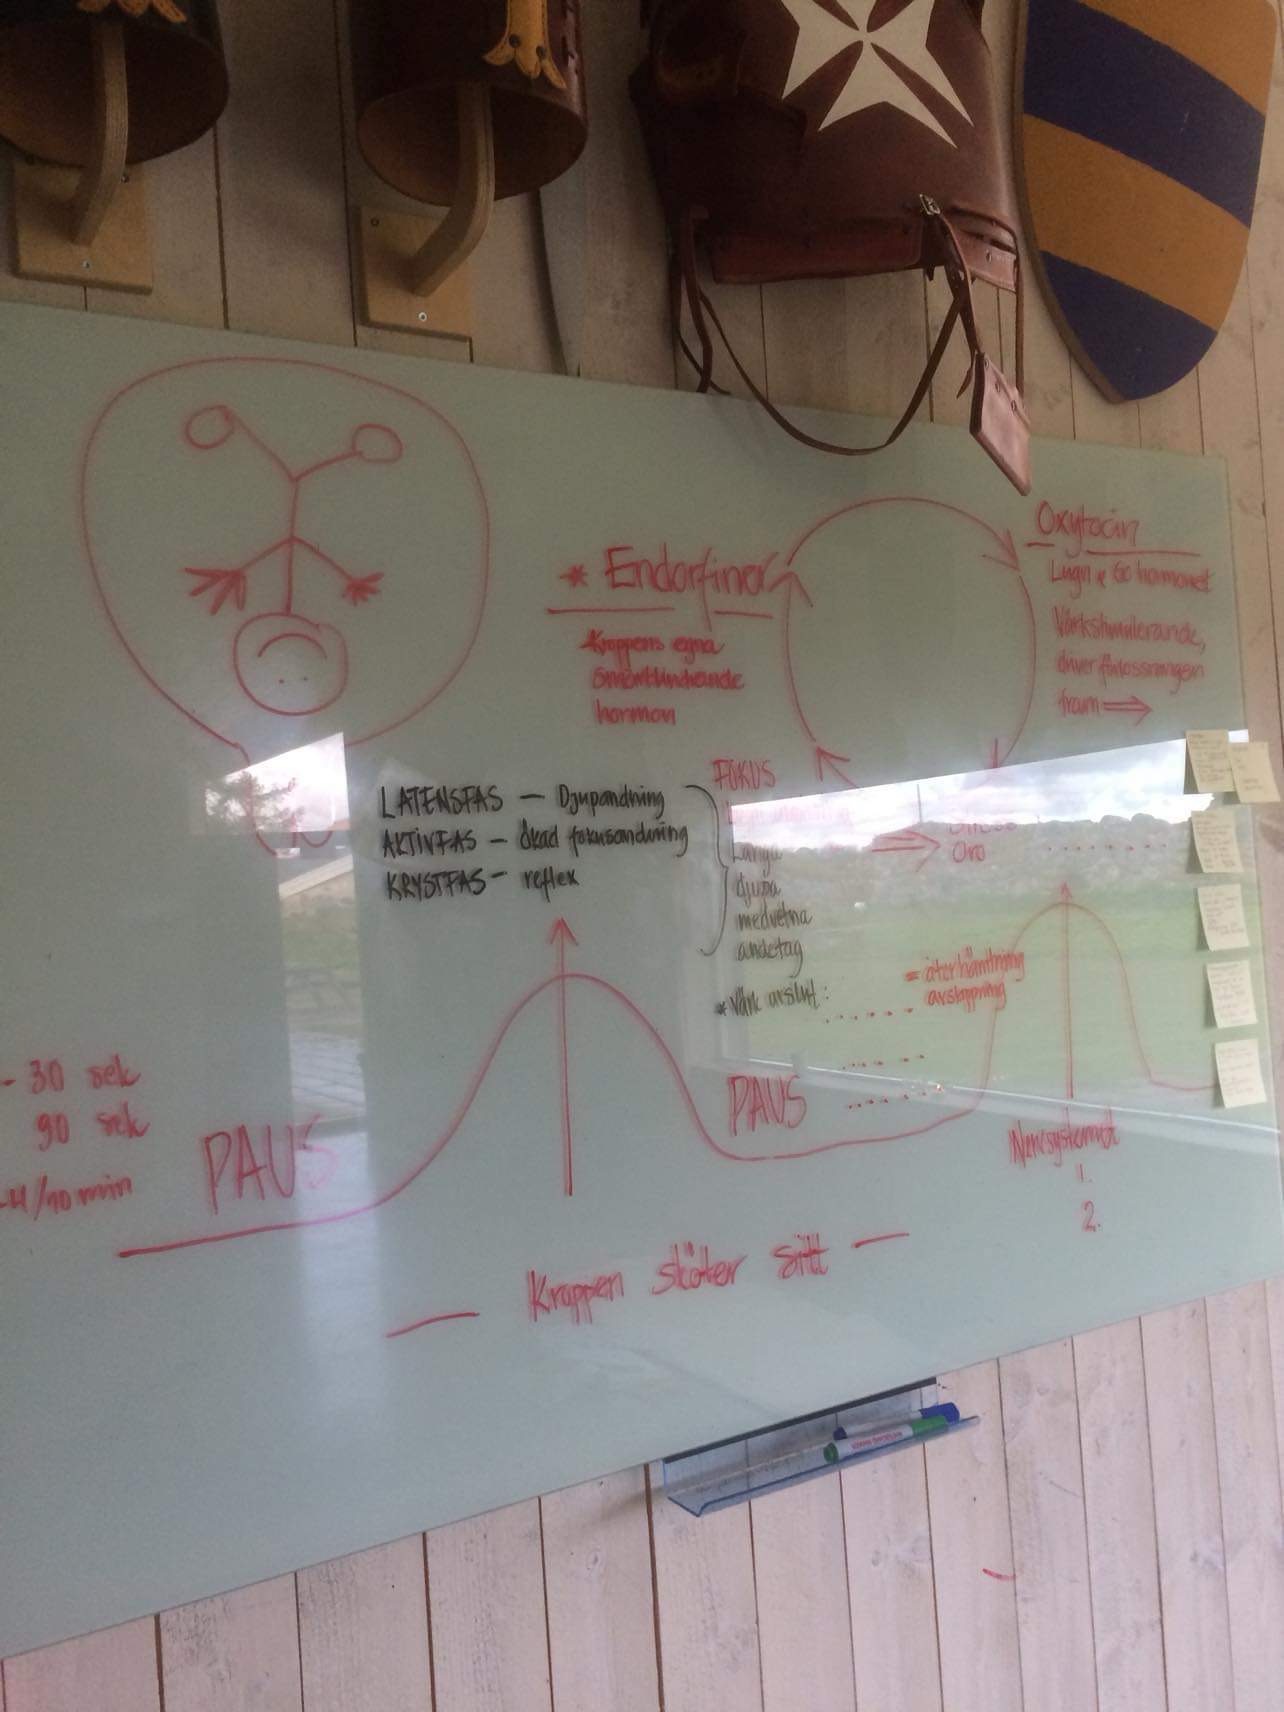 * Endorfiner
Kroppens egna
smärtlindrande
hormon
Oxytocin
Lugn & Ro hormonet
Värkstimulerande,
driver förlossningen
fram
FOKUS
LATENSFAS — Djupandning
AKTIVFAS — ökad fokusandning
KRYSTFAS — reflex
Långa
djupa
medvetna
andetag
* Värk avslut:
Stress
Oro
= återhämtning
avslappning
- 30 sek
90 sek
-4/10 min
PAUS
PAUS
Nervsystemet
1.
2.
— Kroppen sköter sitt —